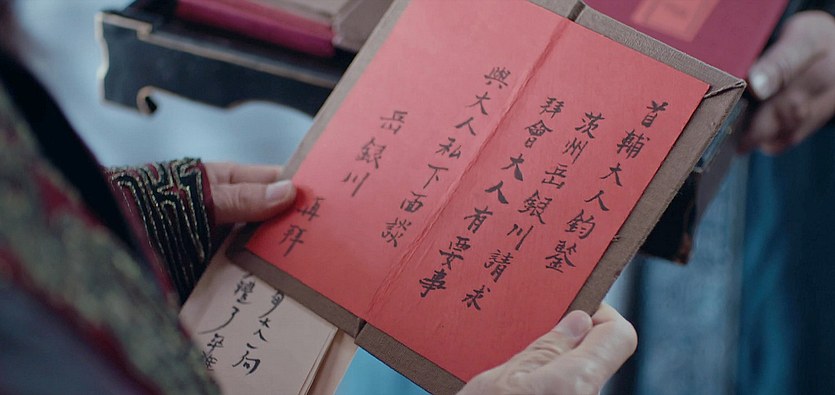 首輔大人鈞鑒
茨州岳銀川請求
拜會大人有要事
與大人私下面談
岳銀川
再拜